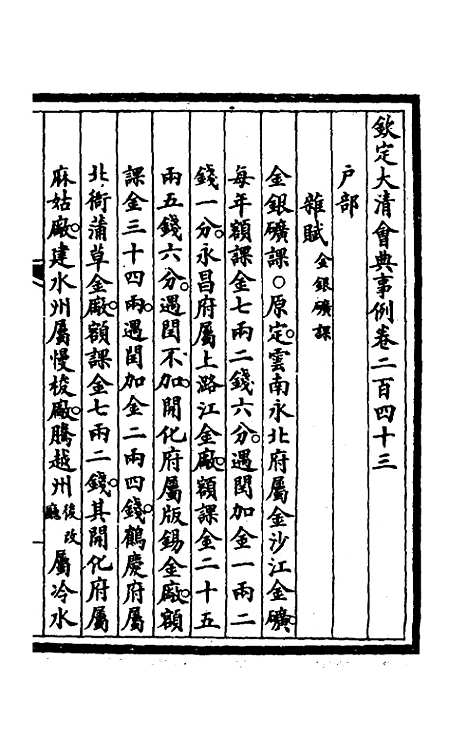 欽定大清會典事例卷二百四十三
戶部
雜賦金銀礦課
金銀礦課○原定雲南永北府屬金沙江金礦
每年額課金七兩二錢六分遇閏加金一兩二
錢一分永昌府屬上潞江金廠額課金二十五
兩五錢六分遇閏不加開化府屬版錫金廠額
課金三十四兩遇閏加金二兩四錢鶴慶府屬
北衙蒲草金廠額課金七兩二錢其開化府屬
麻姑廠建水州屬慢梭廠騰越州後改廳屬冷水